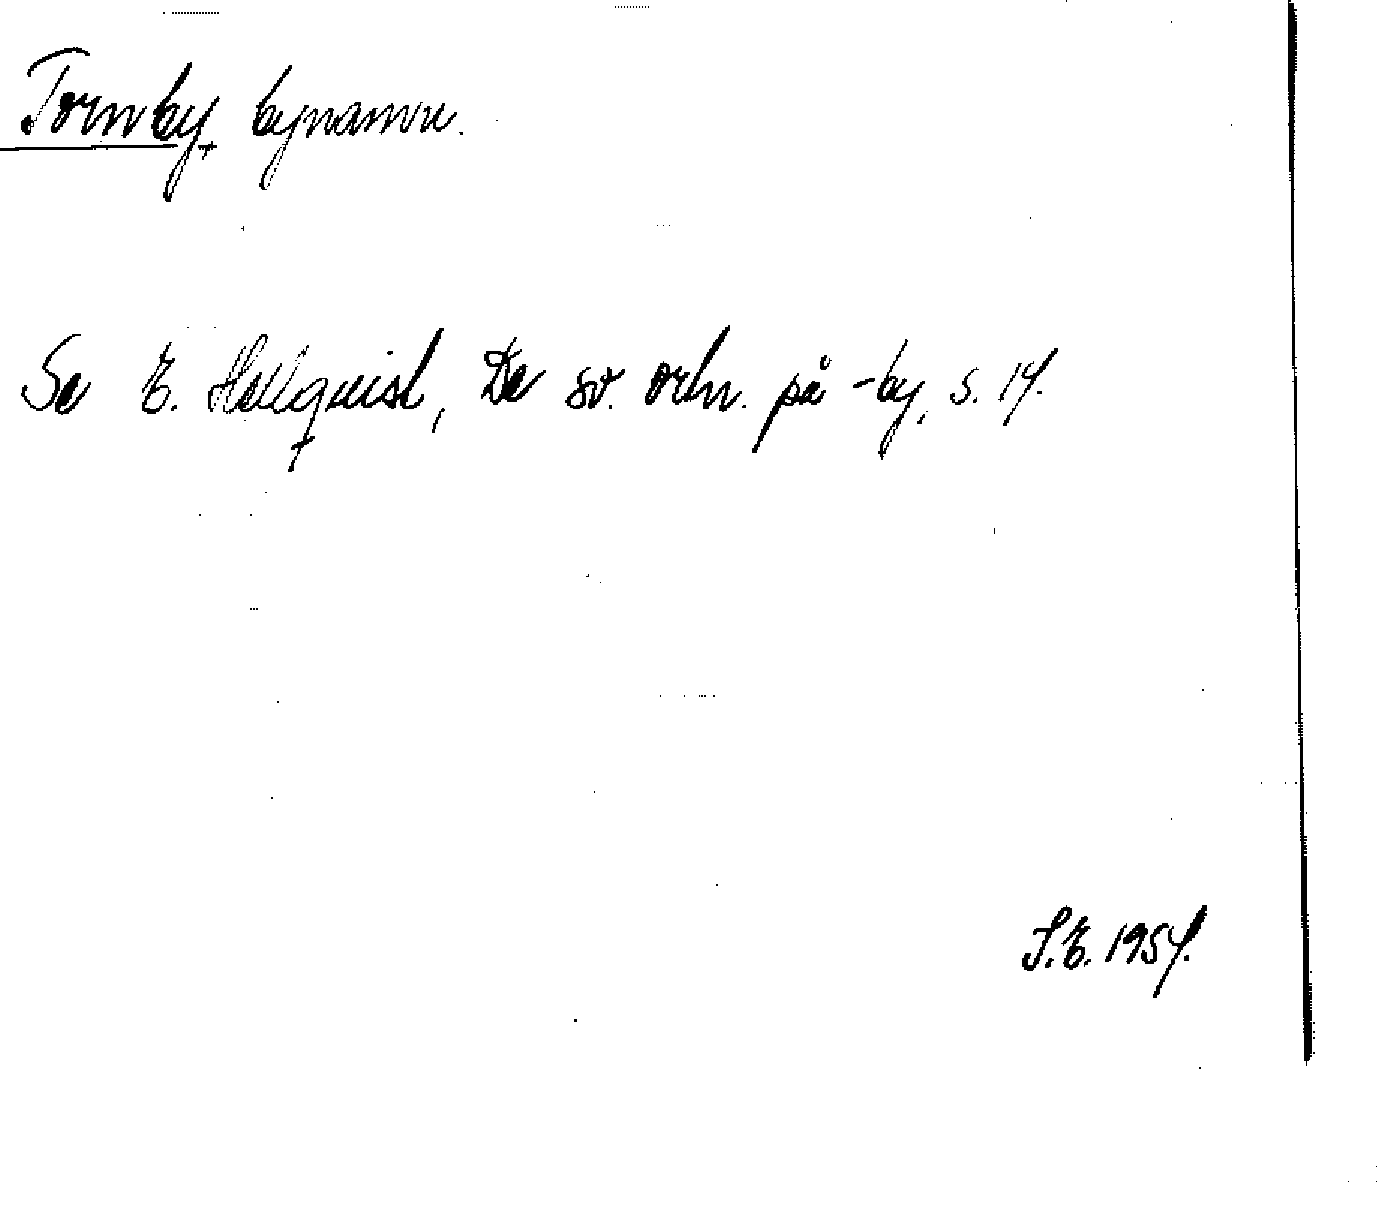 Tornby, bynamn.
Se E. Hellquist, De sv. ortn. på -by, s. 14.
S.E. 1954.